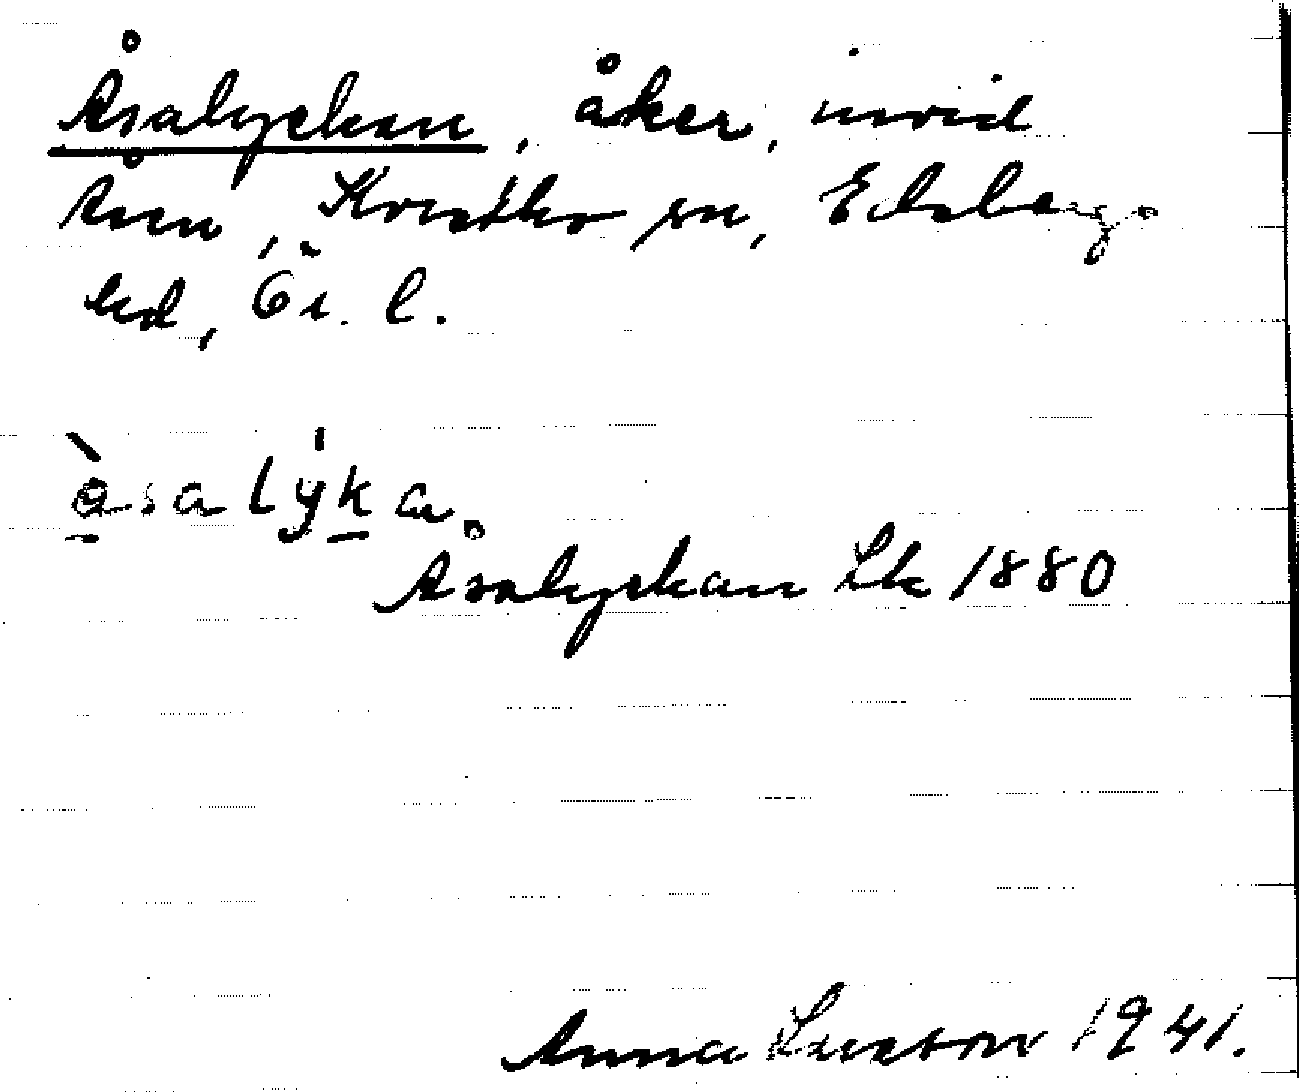 Åsalyckan, åker, invid
Åsen, Kvistbro sn, Edsbergs
hd, Ör. l.
åsalýka
Åsalyckan Lk 1880
Anna Larsson 1941.